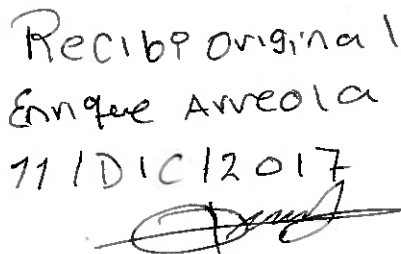 Recibi original
Enrique Arreola
11/DIC/2017